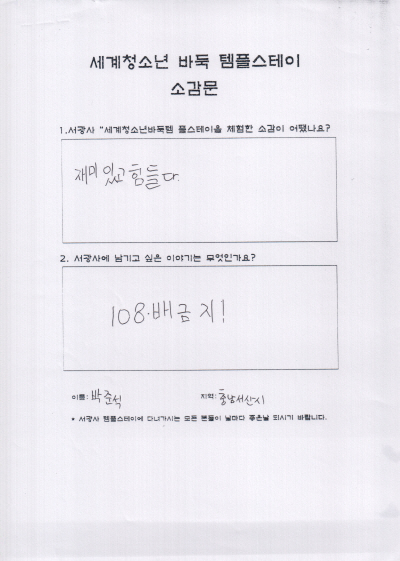 세계청소년 바둑 템플스테이
소감문
1.서광사 "세계청소년바둑템 플스테이을 체험한 소감이 어땠나요?
재미 있고 힘들다.
2. 서광사에 남기고 싶은 이야기는 무엇인가요?
108.배금지!
이름: 박준석 지역: 충남서산시
* 서광사 템플스테이에 다녀가시는 모든 분들이 날마다 좋은날 되시기 바랍니다.